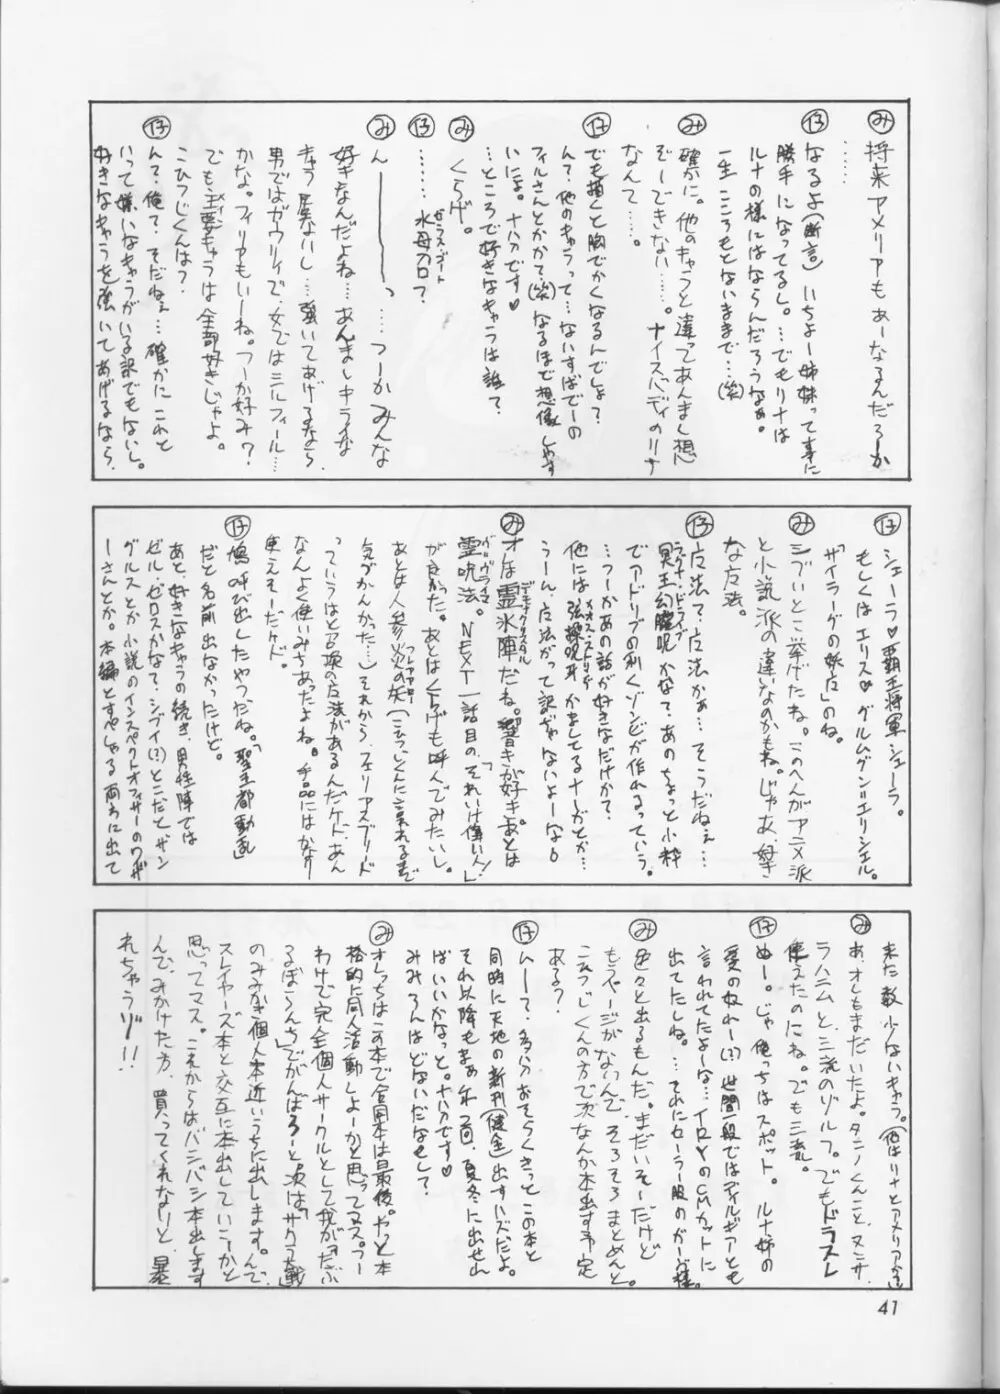 み 将来アメリアもあーなるんだろーか
……
仔 なるよ(断言)いちよー姉妹って事に
勝手になってるし。…でもリナは
ルナの様にはならんだろうなぁ。
一生こころもとないままで…(笑)
み 確かに。他のキャラと違ってあんまし想
ぞーできない……。ナイスバディのリナ
なんて…。
仔 でも描くと胸でかくなるんでしょ?
ん?他のキャラって…ないすばでーの
フィルさんとかかて?(笑)なるほど想像しやす
いによ。十分です♥
…ところで好きなキャラは誰?
み くらげ。
仔 ……水母刀?
み んーーーっ……つーかみんな
好きなんだよね…あんましキライな
キャラ居ないし…強いてあげるなら
男ではガウリイで、女ではシルフィール…
かな。フィリアもいーね。つーか好み?
でも、主要キャラは全部好きじゃよ。
こひつじくんは?
仔 ん?俺?そだねぇ…確かにこれと
いって嫌いなキャラがいる訳でもないし。
好きなキャラを強いてあげるなら、
仔 シェーラ♥覇王将軍シェーラ。
もしくはエリス♥グルムグン=エリシエル。
「ザイラーグの妖女」のね。
み シブいとこ挙げたね。このへんがアニメ派
と小説派の違いなのかもね。じゃあ、好き
な方法。
仔 方法?方法かぁ…そうだねぇ…
冥王幻朧呪かなて?あのちょっと小粋
でアドリブの利くゾンビが作れるっていう。
…つーかあの話が好きなだけかて?
他には かましてるナーガとか…
うーん、方法がって訳ぢゃないよーな
み オレは霊氷陣だね。響きが好き。あとは
霊呪法。NEXT一話目の、「それいけ偉い人!」
が良かった。あとはくらげも呼んでみたいし。
あとは人参炎の矢(こひつじくんに言われるまで
気づかんかった…)それから、フェリアスブリード
っていうは召喚の方法があるんだケド、あん
なんよく使いみちあったよね。手品にはかなり
使えそーだケド。
仔 鳩の呼び出したやつだね。「聖王都動乱」
だと名前出なかったけど。
あと、好きなキャラの続き、男性陣では
ゼル・ゼロスかな?シブイ(?)とこだと、ザン
グルスとか小説のインスペクトオフィサーのワイザ
ーさんとか。本編とすぺしゃる両方に出て
来た数少ないキャラ。(他はリナとアメリア
み あ、オレもまだいたよ。タニノくんこと、ヌンサ、
ラハニムと、三流のゾルフ。でもドラスレ
使えたのにね。でも三流。
仔 ぬー。じゃ俺っちはスポット。ルナ姉の
愛の奴れー(?)世間一般ではディルギアとも
言われてたよーな…イロYのCMカットに
出てたしね。…それにセーラー服のガーヴ様。
み 色々と出るもんだ。まだいそーだけど
もうページがないんで、そろそろまとめんと。
こひつじくんの方で次なんか本出す予定
ある?
仔 んー?多分おそらくきっとこの本と
同時に天地の新刊(健全)出すハズだよ。
それ以降もまぁ年2回、夏冬に出せれ
ばいいかなっと。十分です♥
みみろんはどないだなもして?
み オレっちはこの本で合同本は最後。やっと本
格的に同人活動しよーかと思ってマス。つー
わけで完全個人サークルとして我が「だぶ
るぼーらんち」でがんばろーと。次は「サクラ大戦」
のみみかき個人本近いうちに出します。んで、
スレイヤーズ本と交互に本出していこーかと
思ってマス。これからは、バシバシ本出します
んで、みかけた方、買ってくれないと、暴
れちゃうゾ!!
41